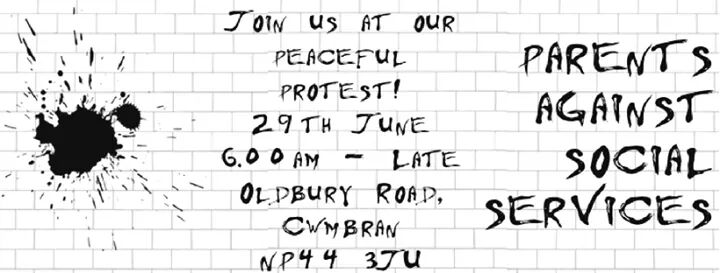 JOIN US AT OUR
PEACEFUL
PROTEST!
29TH JUNE
6.00AM - LATE
OLDBURY ROAD,
CWMBRAN
NP44 3JU
PARENTS
AGAINST
SOCIAL
SERVICES